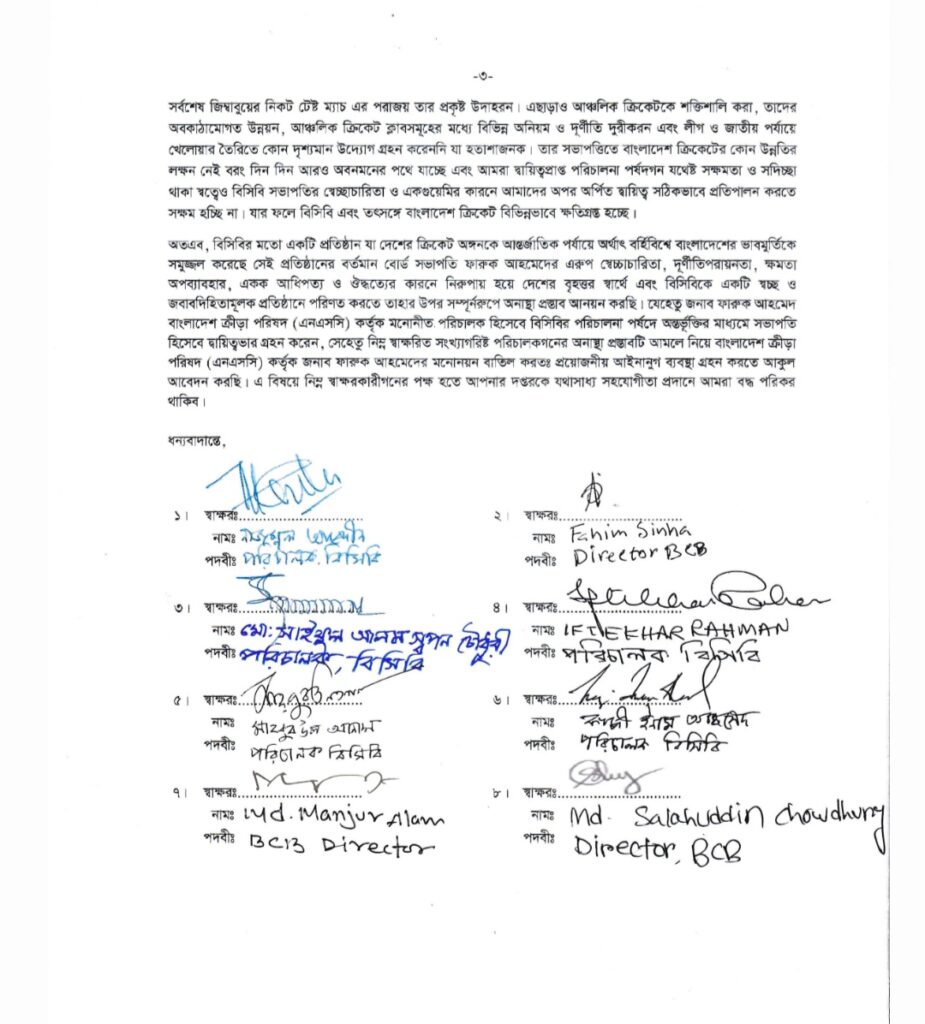 -৩-
সর্বশেষ জিম্বাবুয়ের নিকট টেষ্ট ম্যাচ এর পরাজয় তার প্রকৃষ্ট উদাহরন। এছাড়াও আঞ্চলিক ক্রিকেটকে শক্তিশালি করা, তাদের
অবকাঠামোগত উন্নয়ন, আঞ্চলিক ক্রিকেট ক্লাবসমূহের মধ্যে বিভিন্ন অনিয়ম ও দূর্ণীতি দূরীকরন এবং লীগ ও জাতীয় পর্যায়ে
খেলোয়ার তৈরিতে কোন দৃশ্যমান উদ্যোগ গ্রহন করেননি যা হতাশাজনক। তার সভাপত্তিতে বাংলাদেশ ক্রিকেটের কোন উন্নতির
লক্ষন নেই বরং দিন দিন আরও অবনমনের পথে যাচ্ছে এবং আমরা দ্বায়িত্বপ্রাপ্ত পরিচালনা পর্ষদগন যথেষ্ট সক্ষমতা ও সদিচ্ছা
থাকা স্বত্বেও বিসিবি সভাপতির স্বেচ্ছাচারিতা ও একগুয়েমির কারনে আমাদের অপর অর্পিত দ্বায়িত্ব সঠিকভাবে প্রতিপালন করতে
সক্ষম হচ্ছি না। যার ফলে বিসিবি এবং তৎসঙ্গে বাংলাদেশ ক্রিকেট বিভিন্নভাবে ক্ষতিগ্রস্ত হচ্ছে।
অতএব, বিসিবির মতো একটি প্রতিষ্ঠান যা দেশের ক্রিকেট অঙ্গনকে আন্তর্জাতিক পর্যায়ে অর্থাৎ বর্হিবিশ্বে বাংলাদেশের ভাবমূর্তিকে
সমুজ্জল করেছে সেই প্রতিষ্ঠানের বর্তমান বোর্ড সভাপতি ফারুক আহমেদের এরুপ স্বেচ্ছাচারিতা, দূর্ণীতিপরায়নতা, ক্ষমতা
অপব্যাবহার, একক আধিপত্য ও ঔদ্ধত্যের কারনে নিরুপায় হয়ে দেশের বৃহত্তর স্বার্থে এবং বিসিবিকে একটি স্বচ্ছ ও
জবাবদিহিতামূলক প্রতিষ্ঠানে পরিণত করতে তাহার উপর সম্পূর্নরুপে অনাস্থা প্রস্তাব আনয়ন করছি। যেহেতু জনাব ফারুক আহমেদ
বাংলাদেশ ক্রীড়া পরিষদ (এনএসসি) কর্তৃক মনোনীত পরিচালক হিসেবে বিসিবির পরিচালনা পর্ষদে অন্তর্ভূক্তির মাধ্যমে সভাপতি
হিসেবে দ্বায়িত্বভার গ্রহন করেন, সেহেতু নিম্ন স্বাক্ষরিত সংখ্যাগরিষ্ট পরিচালকগনের অনাস্থা প্রস্তাবটি আমলে নিয়ে বাংলাদেশ ক্রীড়া
পরিষদ (এনএসসি) কর্তৃক জনাব ফারুক আহমেদের মনোনয়ন বাতিল করতঃ প্রয়োজনীয় আইনানুগ ব্যবস্থা গ্রহন করতে আকুল
আবেদন করছি। এ বিষয়ে নিম্ন স্বাক্ষরকারীগনের পক্ষ হতে আপনার দপ্তরকে যথাসাধ্য সহযোগীতা প্রদানে আমরা বদ্ধ পরিকর
থাকিব।
ধন্যবাদান্তে,
১। স্বাক্ষরঃ
নামঃ
পদবীঃ পরিচালক, বিসিবি
২। স্বাক্ষরঃ
নামঃ Fahim Sinha
পদবীঃ Director BCB
৩। স্বাক্ষরঃ
নামঃ মো: সাইফুল আলম স্বপন (চৌধুরী)
পদবীঃ পরিচালক, বিসিবি
৪। স্বাক্ষরঃ
নামঃ IFTEKHAR RAHMAN
পদবীঃ পরিচালক বিসিবি
৫। স্বাক্ষরঃ
নামঃ মাহবুবউল আনাম
পদবীঃ পরিচালক বিসিবি
৬। স্বাক্ষরঃ
নামঃ কাজী ইনাম আহমেদ
পদবীঃ পরিচালক বিসিবি
৭। স্বাক্ষরঃ
নামঃ Md. Manjur Alam
পদবীঃ BCB Director
৮। স্বাক্ষরঃ
নামঃ Md. Salahuddin Chowdhury
পদবীঃ Director, BCB